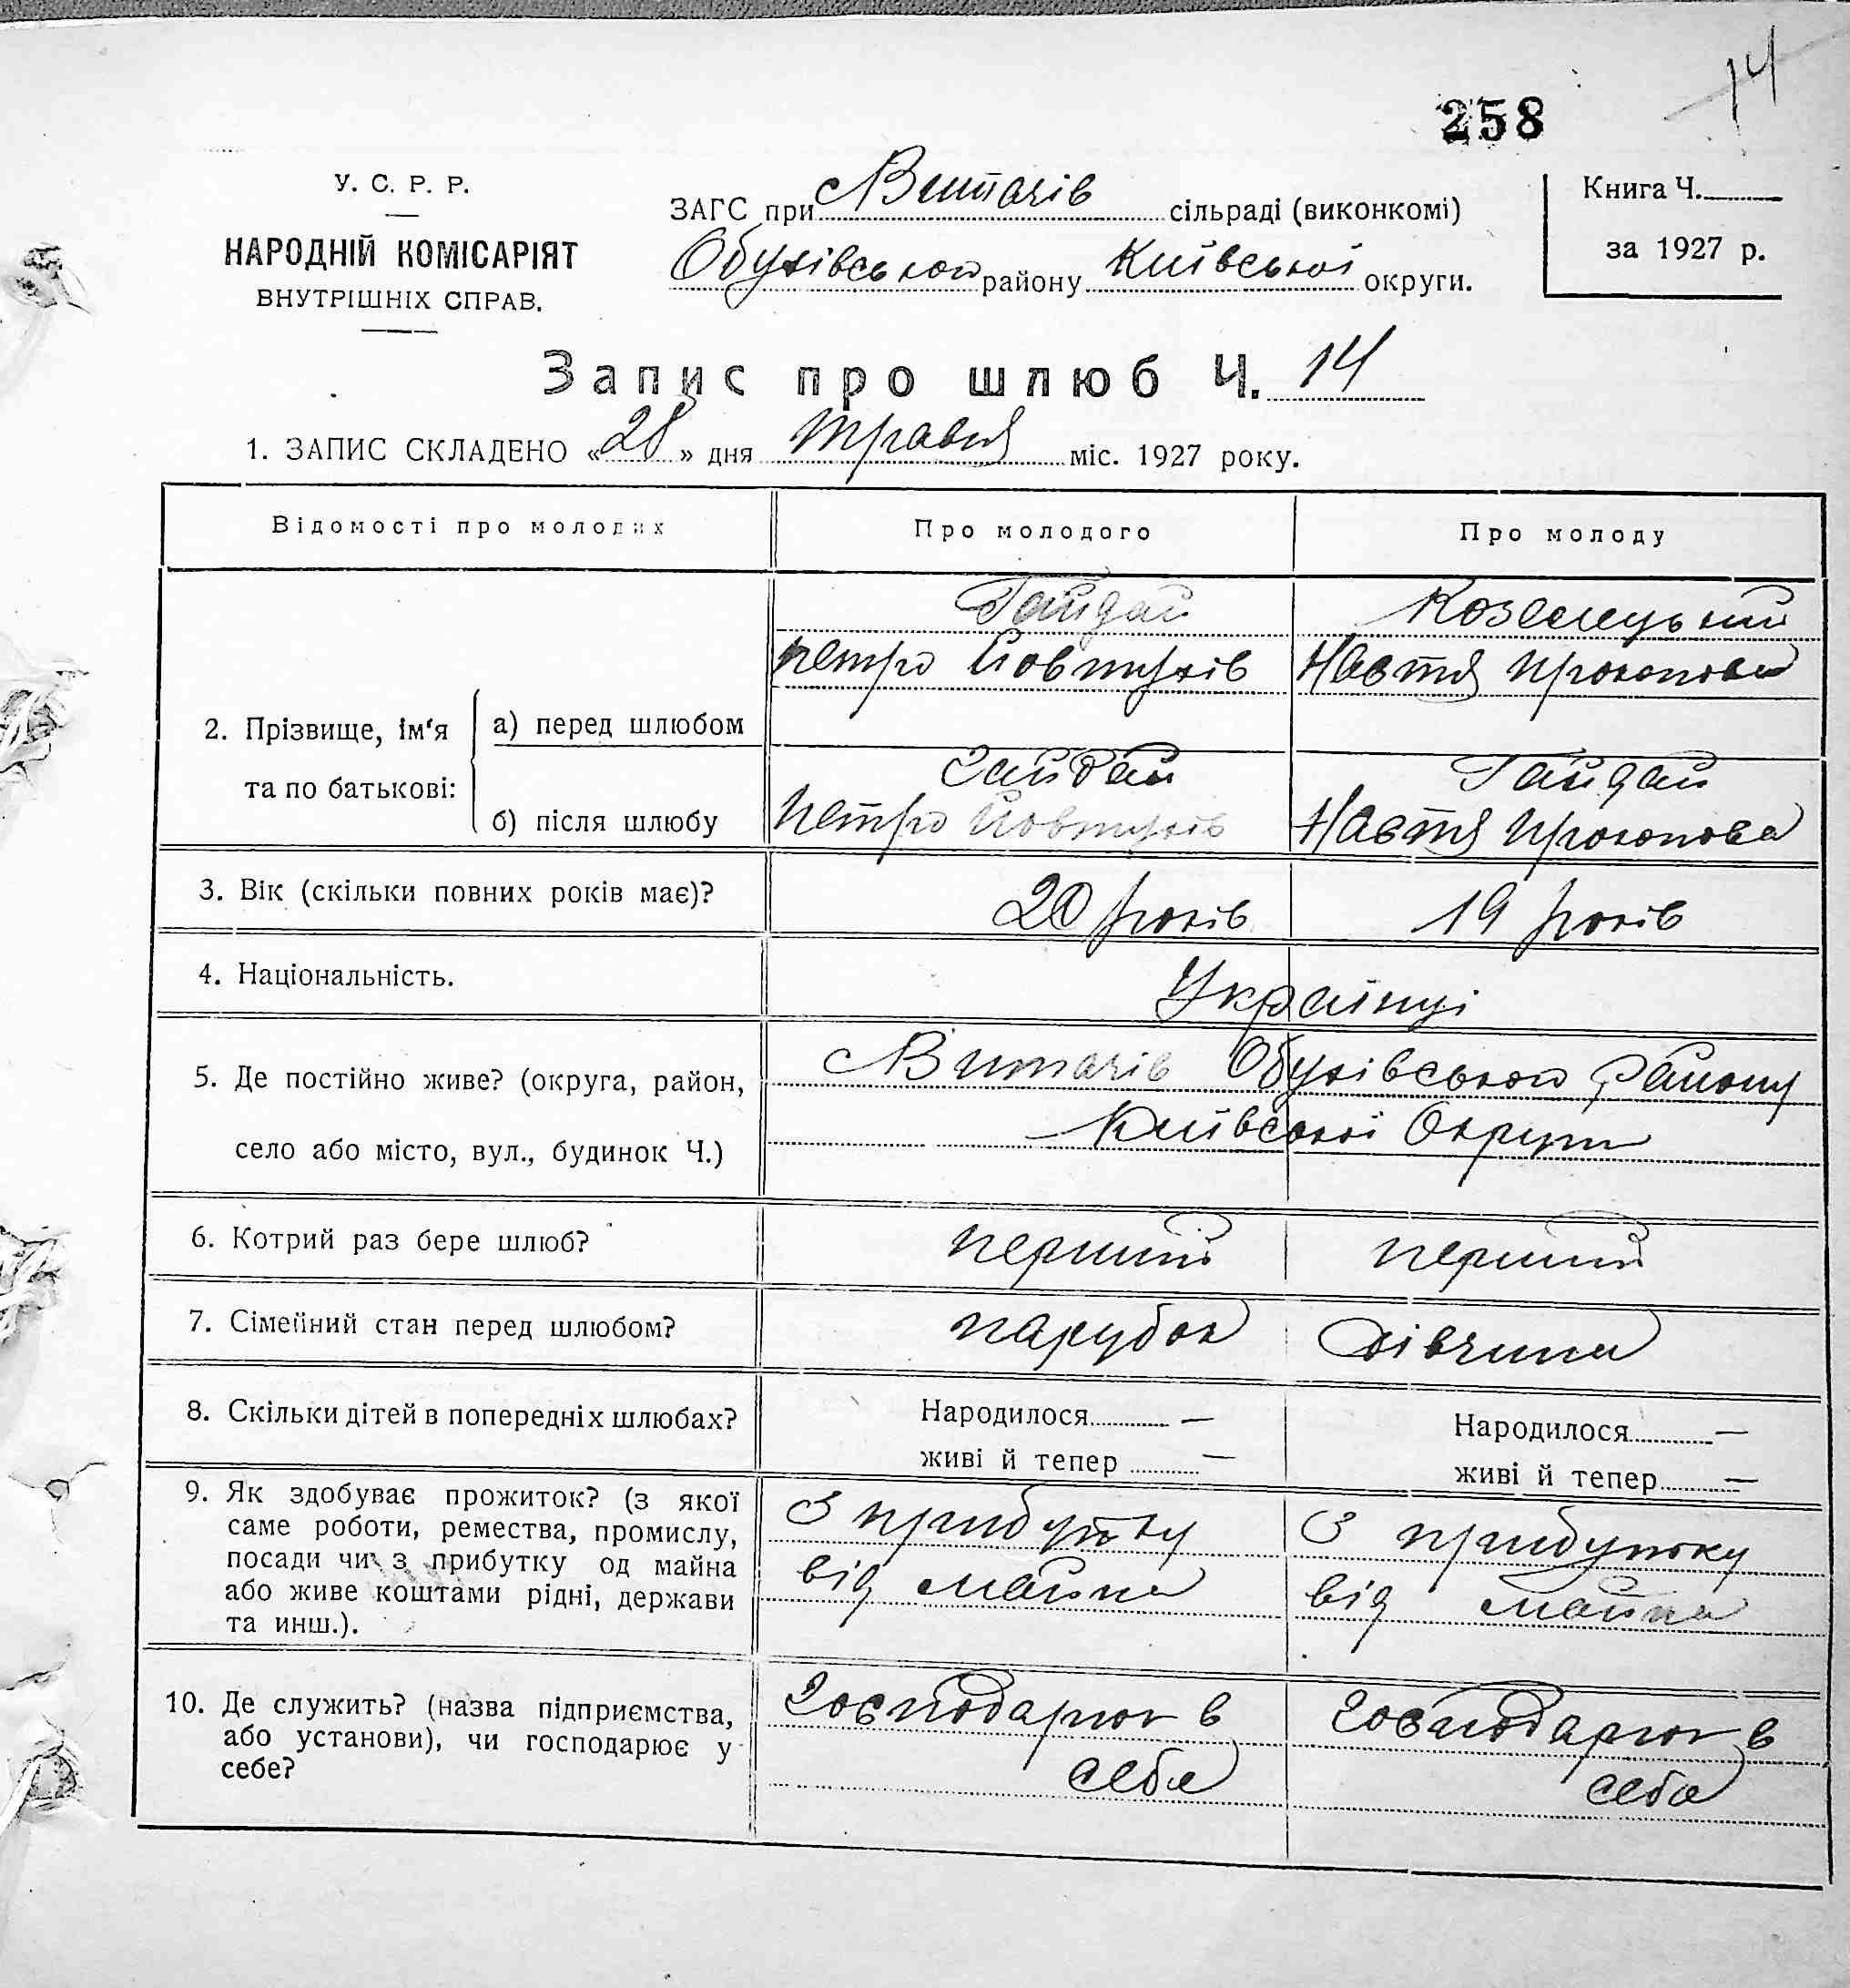 14
258
У. С. Р. Р.
НАРОДНІЙ КОМІСАРІЯТ
ВНУТРІШНІХ СПРАВ.
ЗАГС при Витачів сільраді (виконкомі)
Обухівського району Київської округи.
Книга Ч.
за 1927 р.
Запис про шлюб Ч. 14
1. ЗАПИС СКЛАДЕНО «28» дня травня міс. 1927 року.
Відомості про молодих
Про молодого
Про молоду
2. Прізвище, ім‘я та по батькові:
а) перед шлюбом
Гайдай
Петро Йовтухів
Настя Прокопова
б) після шлюбу
Гайдай
Петро Йовтухів
Гайдай
Настя Прокопова
3. Вік (скільки повних років має)?
20 років
19 років
4. Національність.
Українці
5. Де постійно живе? (округа, район,
село або місто, вул., будинок Ч.)
Витачів Обухівського Району
Київської Округи
6. Котрий раз бере шлюб?
перший
перший
7. Сімейний стан перед шлюбом?
парубок
дівчина
8. Скільки дітей в попередніх шлюбах?
Народилося —
живі й тепер —
Народилося —
живі й тепер —
9. Як здобуває прожиток? (з якої
саме роботи, ремества, промислу,
посади чи з прибутку од майна
або живе коштами рідні, держави
та инш.).
З прибутку
від майна
З прибутку
від майна
10. Де служить? (назва підприємства,
або установи), чи господарює у
себе?
Господарює в
себе
Господарює в
себе